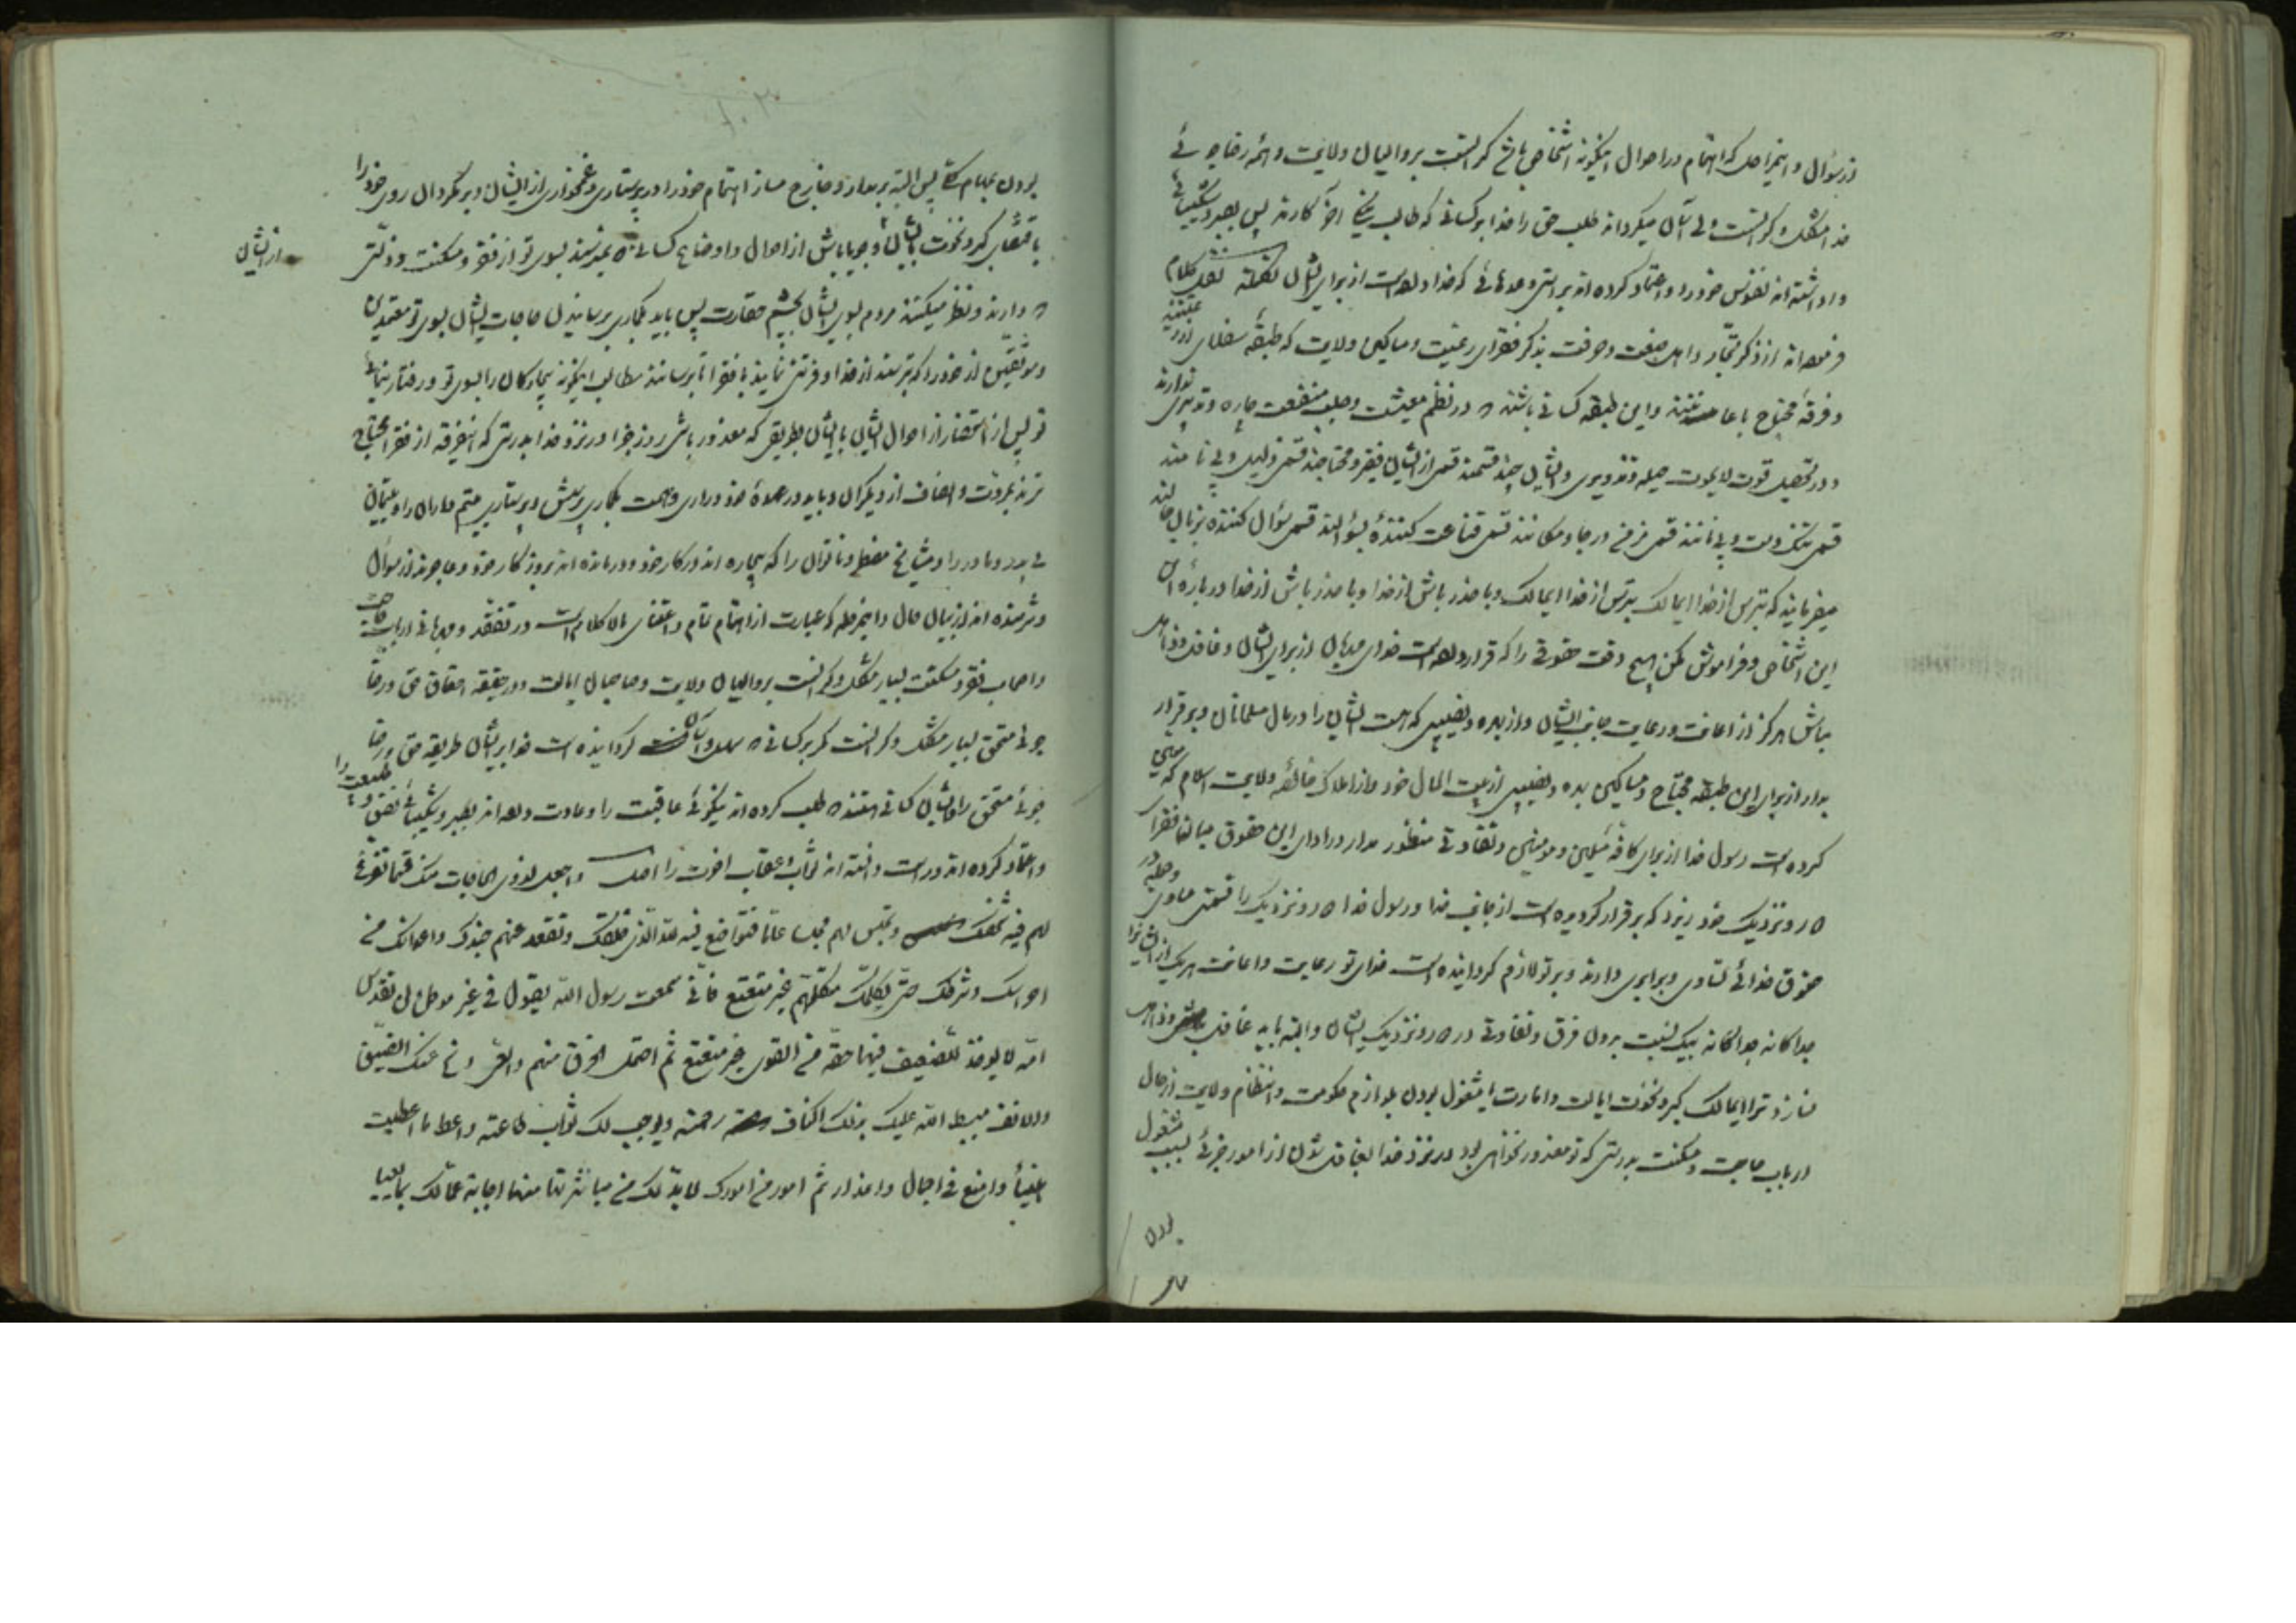 از سؤال و این مراحل که اهتمام در احوال اینگونه اشخاص باشد گرانست بر والیان ولایت و همه رضاجوئی
خدا مشکل و گرانست ولی آسان میگرداند طلب حق را خدا بر کسانی که طالب نیکی آخر کارند پس بصبر و شکیبائی
واداشته‌اند نفوس خود را و اعتماد کرده‌اند براستی وعدهائی که خدا داده است از برای ایشان
فرموده‌اند از ذکر تجار و اهل صنعت و حرفت بذکر فقرای رعیت و مساکین ولایت که طبقه سفلای
و فرقه محتاج با و این طبقه کسانی باشند که در نظم معیشت و جلب منفعت چاره و تدبیری ندارند
و در تحصیل قوت لایموت حیله و تزویری و ایشان چند قسمند قسمی از ایشان فقیر و محتاجند قسمی ذلیل و
قسمی تنگدست و قسمی در جا و مکانند قسمی قناعت کننده بسؤالند قسمی سؤال کننده بزبان حالند
میفرمایند که بترس از خدا ای مالک بترس از خدا ای مالک و با حذر باش از خدا و با حذر باش از خدا در باره
این اشخاص و فراموش مکن هیچ وقت حقوقی را که قرار داده است خدای از برای ایشان و غافل و ذاهل
مباش هرگز از اعانت و رعایت جانب ایشان و از بهره و نصیبی که هست ایشان را در مال مسلمانان و برقرار
بدار از برای این طبقه محتاج و مساکین بهره و نصیبی از بیت المال خود و از املاک خالصه ولایت اسلام که
کرده است رسول خدا از برای کافه مسلمین و مؤمنین و تفاوتی منظور مدار در ادای این حقوق میانه فقرای
دور و نزدیک خود زیرا که برقرار گردیده است از جانب خدا و رسول خدا دور و نزدیک را قسمتی مساوی و جمله در
حقوق خدائی تساوی و برابری دارند و بر تو لازم گردانیده است خدای تو رعایت و اعانت هر یک از ایشانرا
جداگانه جداگانه بیک نسبت بدون فرق و تفاوتی در دور و نزدیک ایشان و البته باید غافل و ذاهل
نسازد ترا ای مالک کبر و نخوت ایالت و امارت یا مشغول بودن بلوازم حکومت و انتظام ولایت از حال
ارباب حاجت و مسکنت بدرستی که تو معذور نخواهی بود در نزد خدا بغافل شدن از امور جزئی بسبب مشغول
بودن
بودن بمهام کلی پس البته بر مدار و خارج مساز اهتمام خود را در پرستاری و غمخواری از ایشان و بر مگردان روی خود را
باقتضای کبر و نخوت از ایشان و جویا باش از احوال و اوضاع کسانی که نمیرسند بسوی تو از فقر و مسکنت و ذلتی
از ایشان
که دارند و نظر میکنند مردم بسوی ایشان بچشم حقارت پس باید بگماری برسانیدن حاجات ایشان بسوی تو معتمدین
و موثقین از خود را که بترسند از خدا و فروتنی نمایند با فقرا تا برسانند مطالب اینگونه بیچارگان را بسوی تو و رفتار نمائی
تو پس از استحضار از احوال ایشان با ایشان بطریقی که معذور باشی روز جزا در نزد خدا بدرستی که این فرقه از فقرا محتاج
ترند بمروت و انصاف از دیگران و باید در عهده خود داری و همت بگماری پرسش و پرستاری یتیم داران را و یتیمان
بی پدر و مادر را و مشایخ و ناتوان را که بیچاره‌اند در کار خود و درمانده‌اند بروزگار خود و عاجزند از سؤال
و شرمنده‌اند از بیان حال و این مرحله که عبارت از اهتمام تمام و اعتنای مالاکلام است در تفقد و مهربانی ارباب حاجت
و اصحاب فقر و مسکنت بسیار مشکل و گرانست بر والیان ولایت و صاحبان ایالت و در حقیقه احقاق حق و رضا
جوئی مستحق بسیار مشکل و گرانست مگر بر کسانی که سهل و آسان گردانیده است خدا بر ایشان طریقه حق و رضا
جوئی مستحق را و ایشان کسانی هستند که طلب کرده‌اند نیکوئی عاقبت را و عادت داده‌اند بصبر و شکیبائی نفس و طبیعت را
و اعتماد کرده‌اند و دانسته‌اند ثواب و عقاب اخرت را اصل و اجعل لذوی الحاجات منک قسما تفرغ
لهم فیه شخصک و تجلس لهم مجلسا عاما فتواضع فیه لله الذی خلقک و تقعد عنهم جندک و اعوانک من
احراسک و شرطک حتی یکلمک متکلمهم غیر متتعتع فانی سمعت رسول الله یقول فی غیر موطن لن تقدس
امة لا یؤخذ للضعیف فیها حقه من القوی غیر متتعتع ثم احتمل الخرق منهم و العی و نح عنک الضیق
و الانف یبسط الله علیک بذلک اکناف رحمته و یوجب لک ثواب طاعته و اعط ما اعطیت
هنیئا و امنع فی اجمال و اعذار ثم امور من امورک لا بد لک من مباشرتها منها اجابة عمالک بما یعیا